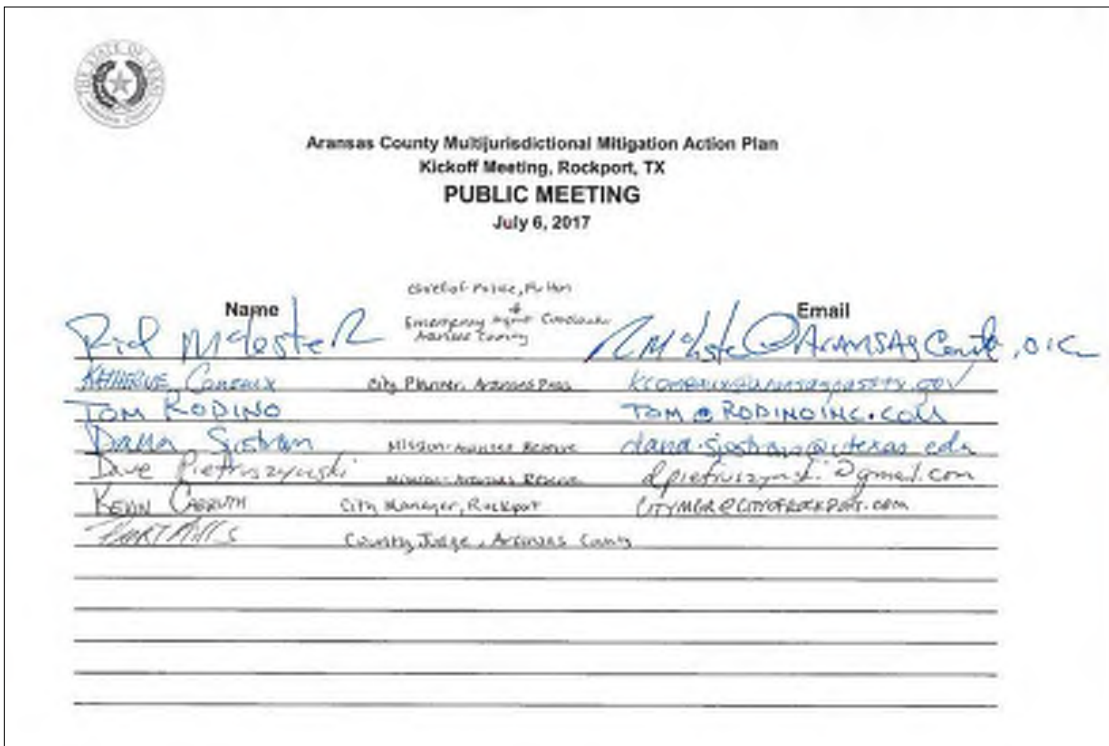 THE STATE OF TEXAS
Aransas County Multijurisdictional Mitigation Action Plan
Kickoff Meeting, Rockport, TX
PUBLIC MEETING
July 6, 2017
Name Email
Chief of Police, Fulton
Emergency Mgmt Coordinator
Aransas County
Rick McLester
KATHERINE City Planner, Aransas Pass
TOM RODINO TOM@RODINOINC.COM
Dana Sjostrom Mission-Aransas Reserve dana.sjostrom@utexas.edu
Dave Pietruszynski Mission-Aransas Reserve dpietruszynski@gmail.com
KEVIN CARRUTH City Manager, Rockport CITYMGR@CITYOFROCKPORT.COM
County Judge, Aransas County